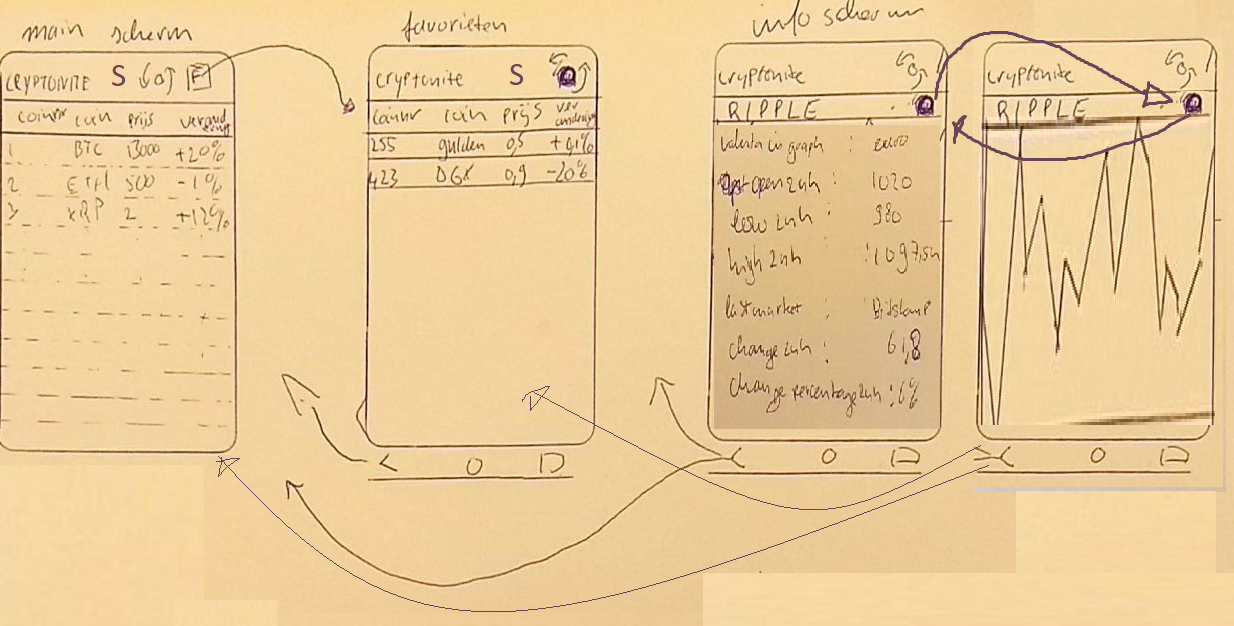 main scherm
CRYPTONITE S F
coinnr coin prijs verand
ering
1 BTC 13000 +20%
2 ETH 500 -1%
3 XRP 2 +12%
favorieten
cryptonite S
Coinnr coin prijs ver
andering
255 gulden 0,5 +0,1%
423 DGX 0,9 -20%
info scherm
cryptonite
RIPPLE
valenta in graph : euro
open 24h : 1020
low 24h : 980
high 24h : 1097,54
last market : Bitstamp
change 24h : 61,8
change percentage 24h : 6%
cryptonite
RIPPLE